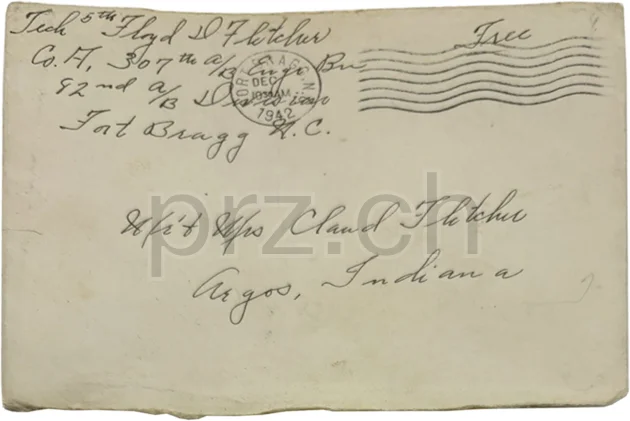 Tech 5th Floyd D Fletcher
Free
Co. A, 307th A/B Engr Bn
82nd A/B Division
Fort Bragg N.C.
FORT BRAGG, N.C.
DEC
1942
Mr & Mrs Claud Fletcher
Argos, Indiana
prz.ch